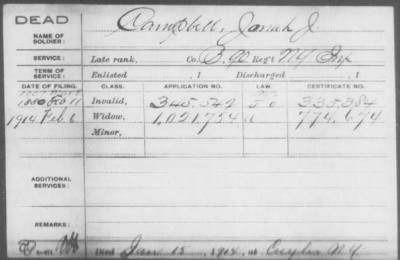 DEAD
NAME OF SOLDIER: Campbell, Jonah J.
SERVICE: Late rank, Co. Reg't N.Y. Inf
TERM OF SERVICE: Enlisted , 1 Discharged , 1
DATE OF FILING. CLASS. APPLICATION NO. LAW. CERTIFICATE NO.
1880 Feb 11 Invalid, 345,542 335,384
1914 Feb. 6 Widow, 1,021,754 774,674
Minor,
ADDITIONAL SERVICES:
REMARKS:
Died Jan 15, 1914, at Cuyler N.Y.